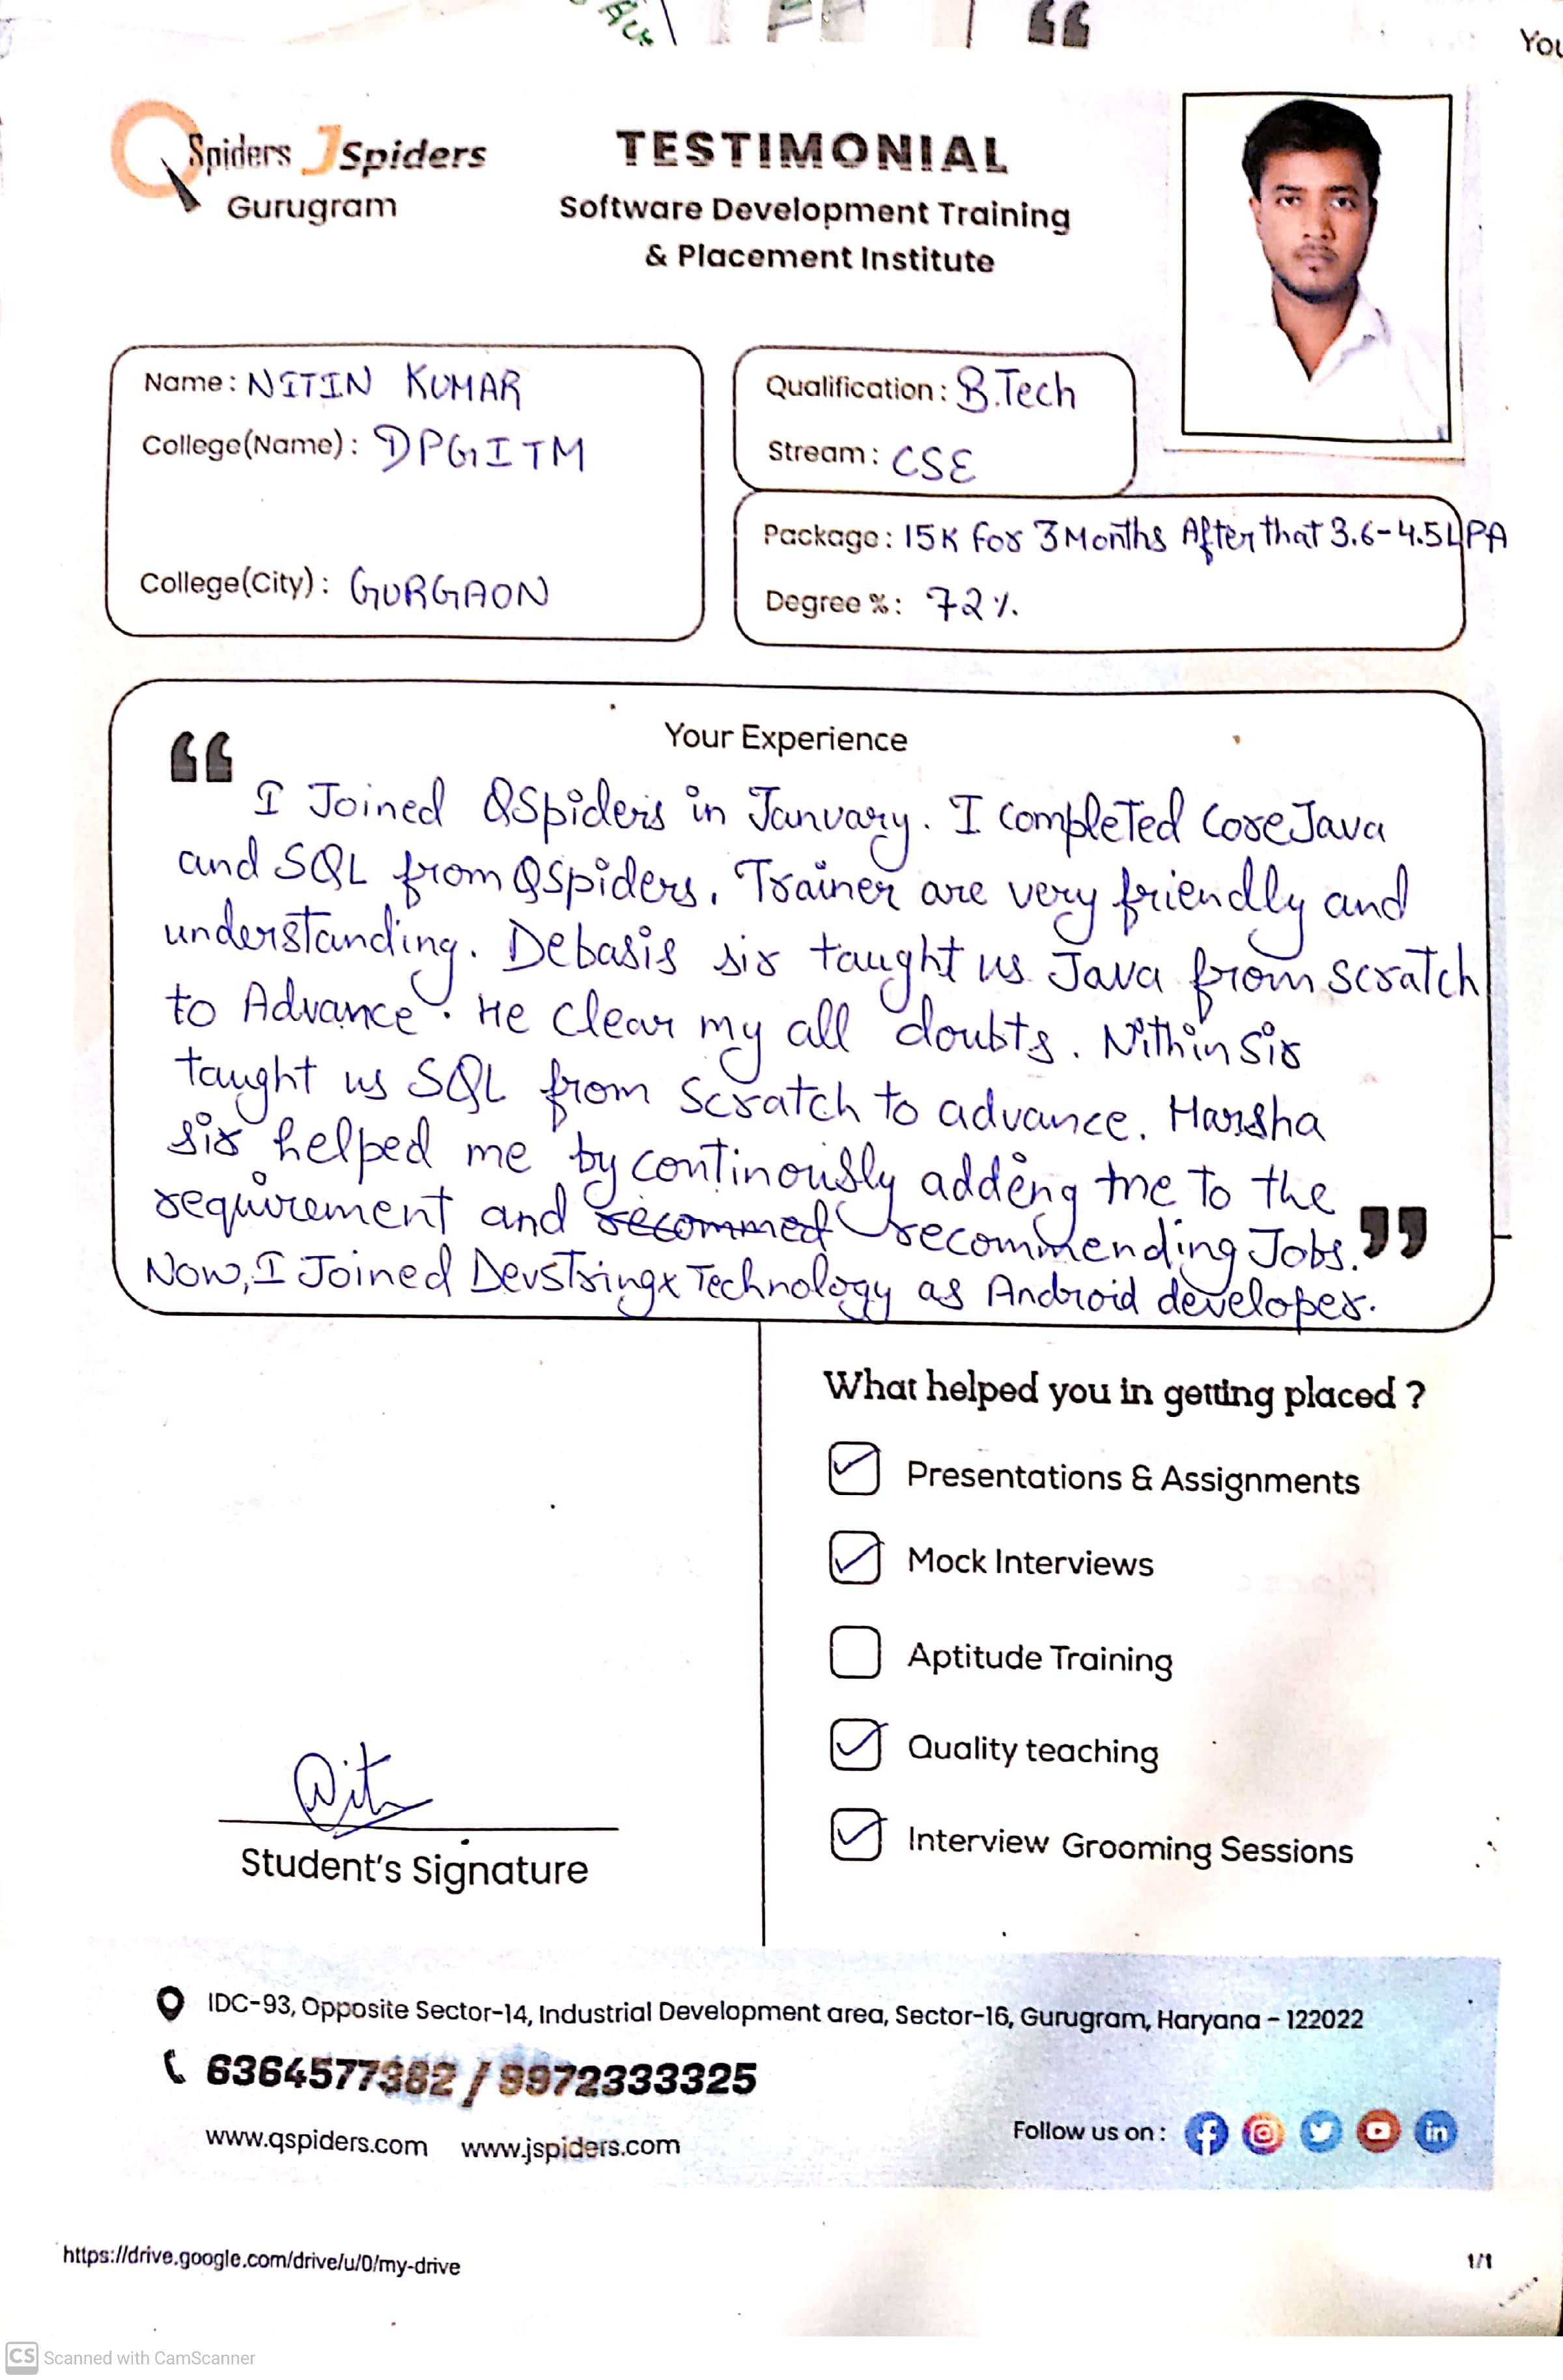 You
QSpiders JSpiders
Gurugram
TESTIMONIAL
Software Development Training
& Placement Institute
Name: NITIN KUMAR
College(Name): DPGITM
College(City): GURGAON
Qualification: B.Tech
Stream: CSE
Package: 15K For 3 Months After that 3.6-4.5 LPA
Degree %: 72%
Your Experience
“ I Joined QSpiders in January. I completed Core Java
and SQL from QSpiders. Trainer are very friendly and
understanding. Debasis sir taught us Java from scratch
to Advance. He clear my all doubts. Nithin Sir
taught us SQL from Scratch to advance. Harsha
sir helped me by continously adding me to the
requirement and recommed recommending Jobs. ”
Now, I Joined DevStringx Technology as Android developer.
What helped you in getting placed ?
Presentations & Assignments
Mock Interviews
Aptitude Training
Quality teaching
Interview Grooming Sessions
Nitin
Student's Signature
IDC-93, Opposite Sector-14, Industrial Development area, Sector-16, Gurugram, Haryana - 122022
6364577382 / 9972333325
www.qspiders.com www.jspiders.com
Follow us on :
https://drive.google.com/drive/u/0/my-drive
1/1
CS Scanned with CamScanner